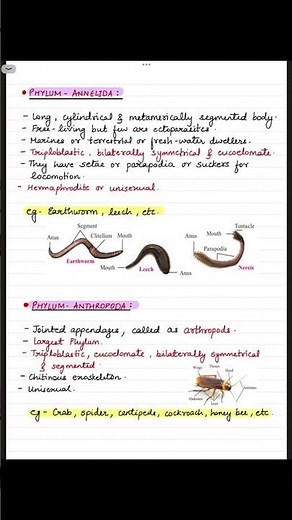 • PHYLUM - ANNELIDA :
- Long, cylindrical & metamerically segmented body.
- Free-living but few are ectoparasites.
- Marines or terrestrial or fresh-water dwellers.
- Triploblastic, bilaterally symmetrical & eucoelomate.
- They have setae or parapodia or suckers for
locomotion.
- Hermaphrodite or unisexual.
eg- Earthworm, leech, etc.
Segment
Anus Clitellum Mouth
Earthworm
Mouth
Leech
Anus
Tentacle
Mouth
Parapodia
Anus
Nereis
• PHYLUM- ANTHROPODA :
- Jointed appendages, called as arthropods.
- Largest Phylum.
- Triploblastic, eucoelomate, bilaterally symmetrical
& segmented
- Chitinous exoskeleton.
- Unisexual.
Wings Thorax Head
Antenna
Abdomen
Legs
eg - Crab, spider, centipede, cockroach, honey bee, etc.